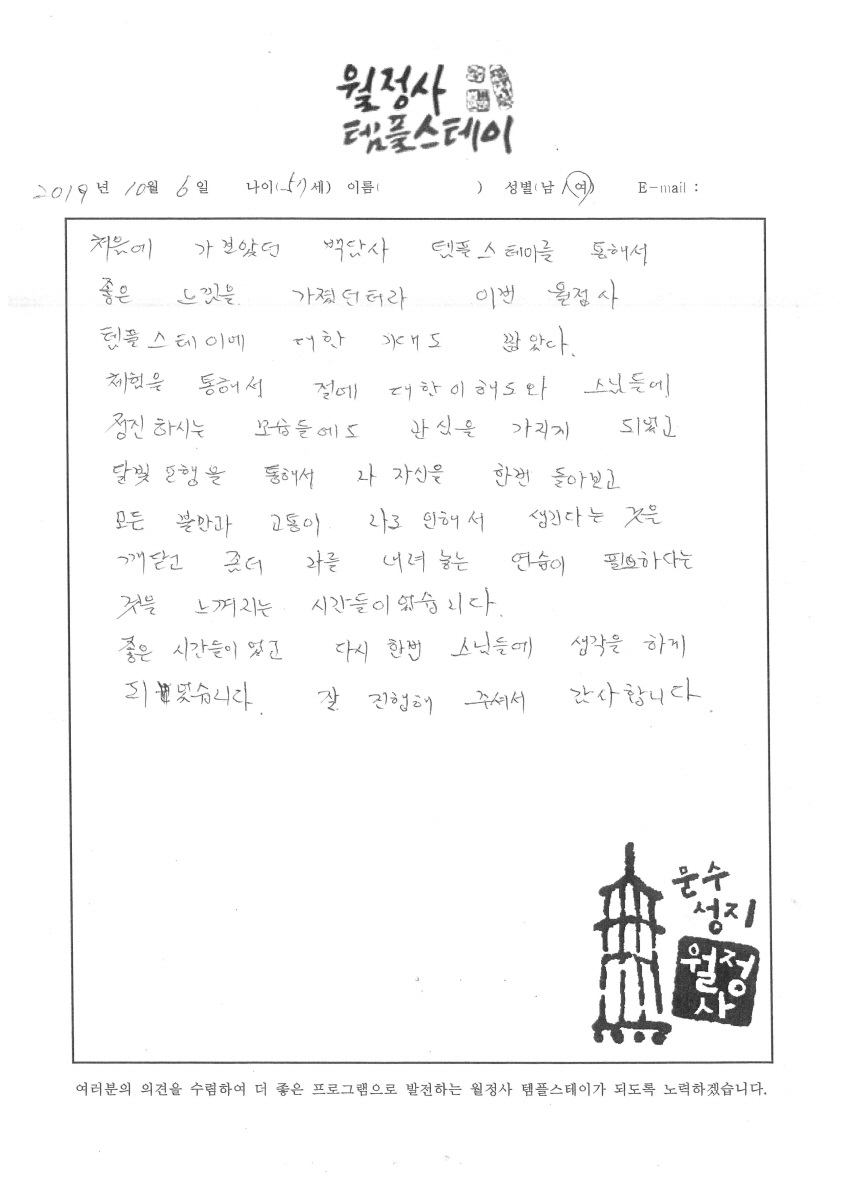 월정사
템플스테이
2019년 10월 6일 나이(57세) 이름( ) 성별(남/여) E-mail :
처음에 가보았던 백담사 템플스테이를 통해서
좋은 느낌을 가졌던터라 이번 월정사
템플스테이에 대한 기대도 많았다.
체험을 통해서 절에 대한 이해도와 스님들에
정진하시는 모습들에도 관심을 가지게 되었고
달빛 포행을 통해서 나 자신을 한번 돌아보고
모든 불만과 고통이 나로 인해서 생긴다는 것을
깨닫고 좀더 나를 내려 놓는 연습이 필요하다는
것을 느껴지는 시간들이었습니다.
좋은 시간들이었고 다시 한번 스님들에 생각을 하게
되었습니다. 잘 진행해 주셔서 감사합니다.
문수
성지
월정
사
여러분의 의견을 수렴하여 더 좋은 프로그램으로 발전하는 월정사 템플스테이가 되도록 노력하겠습니다.